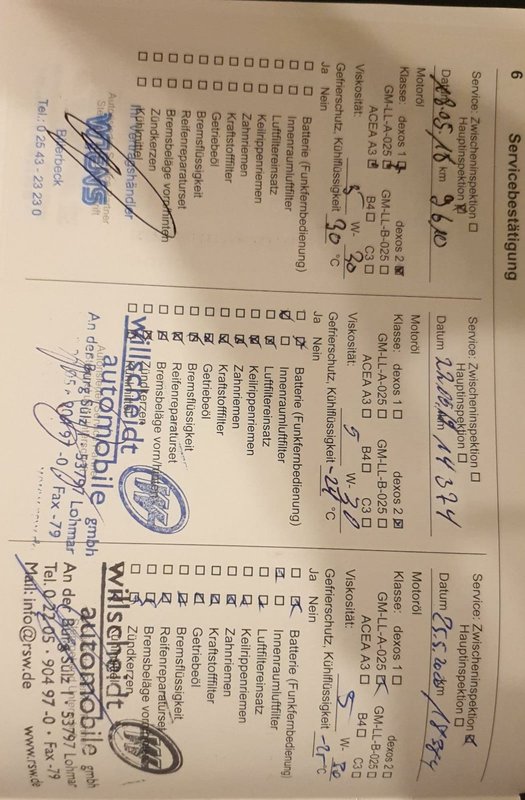 6
Servicebestätigung
Service: Zwischeninspektion ☐
Hauptinspektion ☒
Datum km
Motoröl
Klasse: dexos 1 dexos 2 ☒
GM-LL-A-025 GM-LL-B-025 ☐
ACEA A3 B4 ☐ C3 ☐
Viskosität: 5 W- 30
Gefrierschutz, Kühlflüssigkeit 30 °C
Ja Nein
☐ ☐ Batterie (Funkfernbedienung)
☐ ☐ Innenraumluftfilter
☐ ☐ Luftfiltereinsatz
☐ ☐ Keilrippenriemen
☐ ☐ Zahnriemen
☐ ☐ Kraftstofffilter
☐ ☐ Getriebeöl
☐ ☐ Bremsflüssigkeit
☐ ☐ Reifenreparaturset
☐ ☐ Bremsbeläge vorn/hinten
☐ ☐ Zündkerzen
Billerbeck
Tel.: 0 25 43 - 23 23 0
Service: Zwischeninspektion ☐
Hauptinspektion ☐
Datum km 14374
Motoröl
Klasse: dexos 1 ☐ dexos 2 ☒
GM-LL-A-025 ☐ GM-LL-B-025 ☐
ACEA A3 ☐ B4 ☐ C3 ☐
Viskosität: 5 W- 30
Gefrierschutz, Kühlflüssigkeit °C
Ja Nein
Batterie (Funkfernbedienung)
Innenraumluftfilter
Luftfiltereinsatz
Keilrippenriemen
Zahnriemen
Kraftstofffilter
Getriebeöl
Bremsflüssigkeit
Reifenreparaturset
Bremsbeläge
Zündkerzen
willscheidt
automobile gmbh
An der Burg Sülz 53797 Lohmar
904 97 -0 Fax -79
Service: Zwischeninspektion ☒
Hauptinspektion ☐
Datum km
Motoröl
Klasse: dexos 1 ☐ dexos 2 ☐
GM-LL-A-025 GM-LL-B-025 ☐
ACEA A3 ☐ B4 ☐ C3 ☐
Viskosität: 5 W- 30
Gefrierschutz, Kühlflüssigkeit °C
Ja Nein
Batterie (Funkfernbedienung)
Innenraumluftfilter
Luftfiltereinsatz
Keilrippenriemen
Zahnriemen
Kraftstofffilter
Getriebeöl
Bremsflüssigkeit
Reifenreparaturset
Bremsbeläge
Zündkerzen
willscheidt
automobile gmbh
An der Burg Sülz 53797 Lohmar
Tel. 0 22 05 · 904 97-0 • Fax -79
Mail: info@rsw.de www.rsw.de